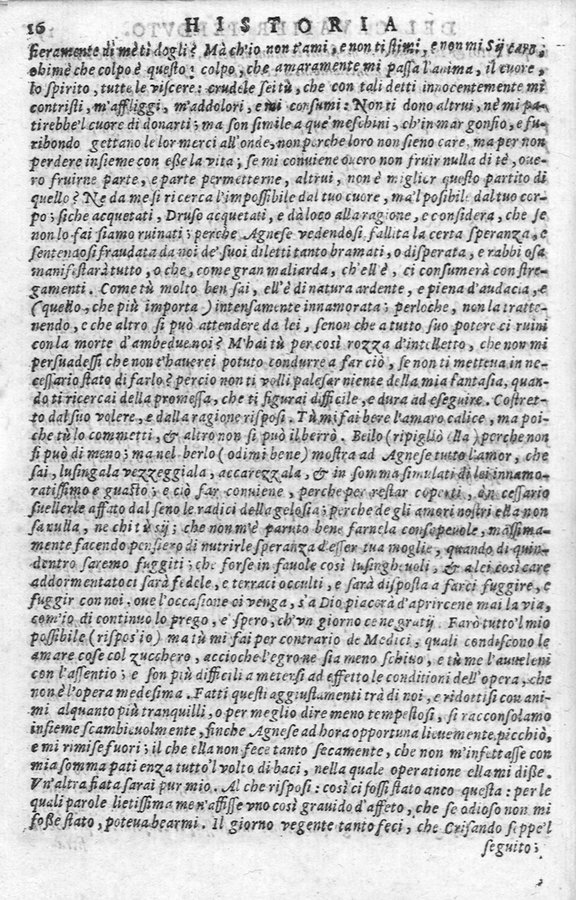 16 HISTORIA
fieramente di mè ti dogli? Mà ch'io non t'ami, e non ti stimi, e non mi Sij caro,
ohimè che colpo è questo: colpo, che amaramente mi passa l'anima, il cuore,
lo spirito, tutte le viscere: crudele sei tù, che con tali detti innocentemente mi
contristi, m'affliggi, m'addolori, e mi consumi: Non ti dono altrui, nè mi pa-
tirebbe'l cuore di donarti; ma son simile a que' meschini, ch'in mar gonfio, e fu-
ribondo gettano le lor merci all'onde, non perche loro non sieno care, ma per non
perdere insieme con esse la vita; se mi conviene overo non fruir nulla di tè, ove-
ro fruirne parte, e parte permetterne, altrui, non è miglior questo partito di
quello? Ne da me si ricerca l'impossibile dal tuo cuore, ma'l possibile dal tuo cor-
po; siche acquetati, Druso acquetati, e dà loco alla ragione, e considera, che se
non lo fai siamo ruinati; perche Agnese vedendosi fallita la certa speranza, e
sentendosi fraudata da noi de' suoi diletti tanto bramati, o disperata, e rabbiosa
manifestarà tutto, o che, come gran maliarda, ch'ell'è, ci consumerà con stre-
gamenti. Come tù molto ben sai, ell'è di natura ardente, e piena d'audacia, e
(quello, che più importa) intensamente innamorata; perloche, non la tratte-
nendo, e che altro si può attendere da lei, senon che a tutto suo potere ci ruini
con la morte d'ambedue noi? M'hai tù per così rozza d'intelletto, che non mi
persuadessi che non t'haverei potuto condurre a far ciò, se non ti metteva in ne-
cessario stato di farlo? percio non ti volli palesar niente della mia fantasia, quan-
do ti ricercai della promessa, che ti figurai difficile, e dura ad eseguire. Costret-
to dal suo volere, e dalla ragione risposi. Tù mi fai bere l'amaro calice, ma poi-
che tù lo commetti, & altro non si può il berrò. Beilo (ripigliò ella) perche non
si può di meno; ma nel berlo (odimi bene) mostra ad Agnese tutto l'amor, che
sai, lusingala vezzeggiala, accarezzala, & in somma simulati di lei innamo-
ratissimo e guasto; e ciò far conviene, perche per restar coperti, è necessario
svellerle affato dal seno le radici della gelosia; perche de gli amori nostri ella non
sa nulla, ne chi tù sij; che non m'è paruto bene farnela consapevole, massima-
mente facendo pensiero di nutrirle speranza d'esser tua moglie, quando di quin-
dentro saremo fuggiti; che forse in favole così lusinghevoli, & a lei così care
addormentatoci sarà fedele, e terracci occulti, e sarà disposta a farci fuggire, e
fuggir con noi, ove l'occasione ci venga, s'a Dio piacerà d'aprircene mai la via,
com'io di continuo lo prego, e spero, ch'un giorno ce ne gratij. Farò tutto'l mio
possibile (rispos'io) ma tù mi fai per contrario de Medici, quali condiscono le
amare cose col zucchero, accioche l'egro ne sia meno schivo, e tù me l'avveleni
con l'assentio; e son più difficili a metersi ad effetto le conditioni dell'opera, che
non è l'opera medesima. Fatti questi aggiustamenti trà di noi, e ridottisi con ani-
mi alquanto più tranquilli, o per meglio dire meno tempestosi, si racconsolamo
insieme scambievolmente, finche Agnese ad hora opportuna lievemente picchiò,
e mi rimise fuori; il che ella non fece tanto secamente, che non m'infettasse con
mia somma patienza tutto'l volto di baci, nella quale operatione ella mi disse.
Un'altra fiata sarai pur mio. Al che risposi: così ci fossi stato anco questa: per le
quali parole lietissima me n'affisse uno così gravido d'affeto, che se odioso non mi
fosse stato, poteva bearmi. Il giorno vegente tanto feci, che Crisando seppe'l
seguito;